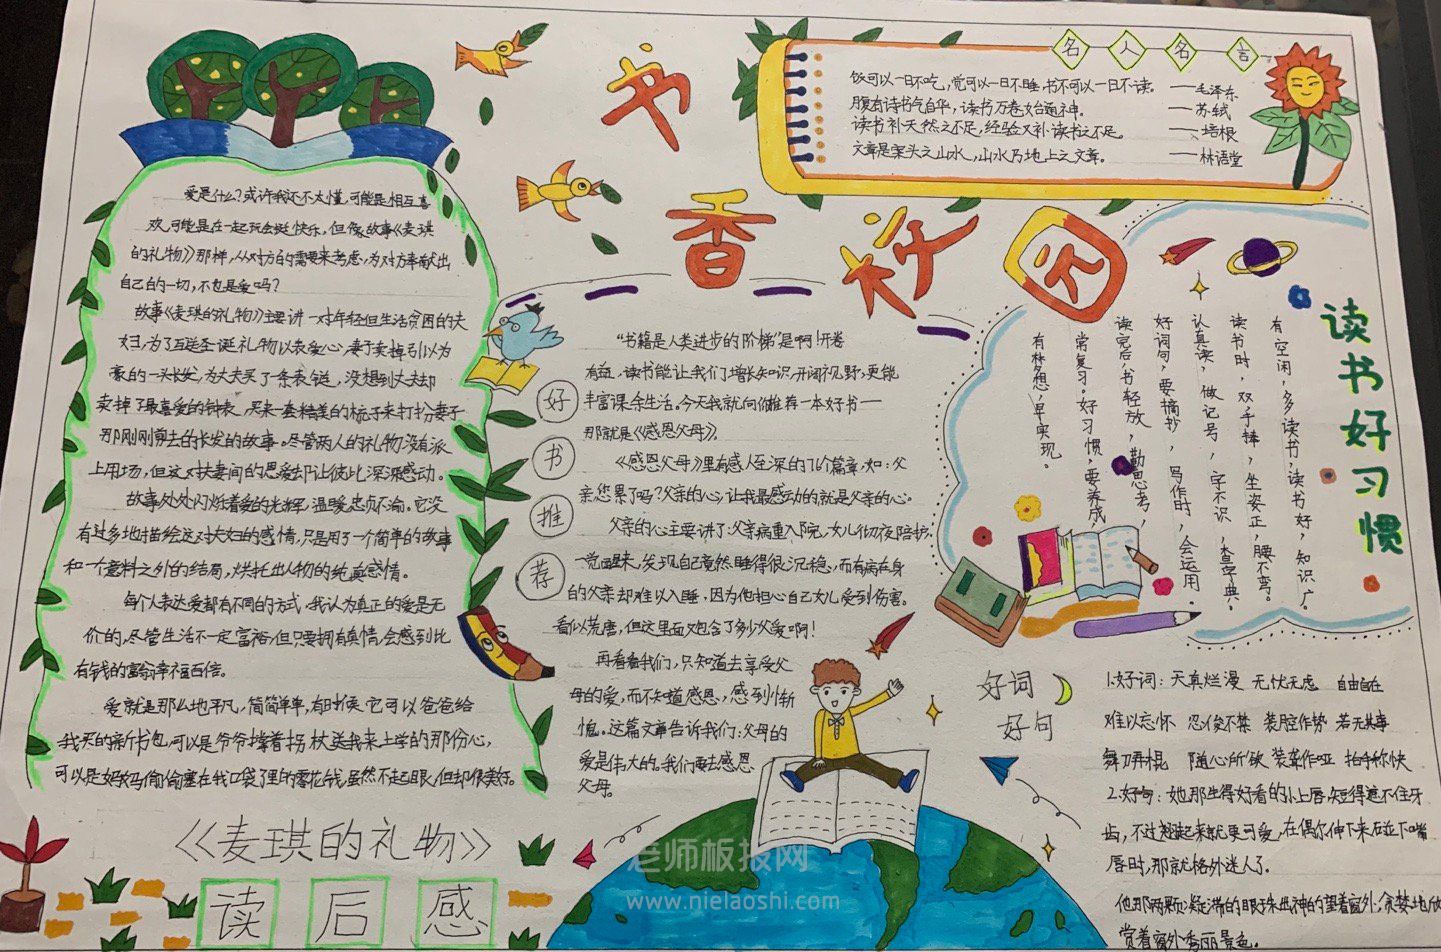 书香校园
名人名言
饭可以一日不吃，觉可以一日不睡，书不可以一日不读。——毛泽东
腹有诗书气自华，读书万卷始通神。——苏轼
读书补天然之不足，经验又补读书之不足。——培根
文章是案头之山水，山水乃地上之文章。——林语堂
爱是什么？或许我还不太懂，可能是相互喜
欢，可能是在一起玩会挺快乐，但像故事《麦琪
的礼物》那样，从对方的需要来考虑，为对方奉献出
自己的一切，不也是爱吗？
故事《麦琪的礼物》主要讲一对年轻但生活贫困的夫
妇，为了互送圣诞礼物以表爱心，妻子卖掉引以为
豪的一头长发，为丈夫买了一条表链，没想到丈夫却
卖掉了最喜爱的钟表，买来一套精美的梳子来打扮妻子
那刚刚剪去的长发的故事。尽管两人的礼物没有派
上用场，但这对夫妻间的恩爱却让彼此深深感动。
故事处处闪烁着爱的光辉，温暖忠贞不渝。它没
有过多地描绘这对夫妇的感情，只是用了一个简单的故事
和一个意料之外的结局，烘托出人物的纯真感情。
每个人表达爱都有不同的方式，我认为真正的爱是无
价的，尽管生活不一定富裕，但只要拥有真情，会感到比
有钱的富翁幸福百倍。
爱就是那么地平凡，简简单单，有时候它可以爸爸给
我买的新书包，可以是爷爷撑着拐杖送我来上学的那份心，
可以是妈妈偷偷塞在我口袋了里的零花钱，虽然不起眼，但却很美好。
《麦琪的礼物》
读后感
好书推荐
“书籍是人类进步的阶梯”是啊！开卷
有益，读书能让我们增长知识，开阔视野，更能
丰富课余生活。今天我就向你推荐一本好书——
那就是《感恩父母》。
《感恩父母》里有感人至深的7个篇章，如：父
亲您累了吗？父亲的心，让我最感动的就是父亲的心。
父亲的心主要讲了：父亲病重入院，女儿彻夜陪护，
一觉醒来，发现自己竟然睡得很沉稳，而有病在身
的父亲却难以入睡，因为他担心自己女儿受到伤害。
看似荒唐，但这里面又包含了多少父爱啊！
再看看我们，只知道去享受父
母的爱，而不知道感恩，感到惭
愧。这篇文章告诉我们：父母的
爱是伟大的。我们要去感恩
父母。
读书好习惯
有空闲，多读书，读书好，知识广。
读书时，双手捧，坐姿正，腰不弯。
认真读，做记号，字不识，查字典。
好词句，要摘抄，写作时，会运用。
读完后，书轻放，勤思考，
常复习。好习惯，要养成，
有梦想，早实现。
好词
好句
1.好词：天真烂漫 无忧无虑 自由自在
难以忘怀 忍俊不禁 装腔作势 若无其事
舞刀弄棍 随心所欲 装聋作哑 拍手称快
2.好句：她那生得好看的小上唇，短得遮不住牙
齿，不过翘起来就更可爱，在偶尔伸下来碰下嘴
唇时，那就格外迷人了。
他那两颗凝滞的眼珠出神的望着窗外，贪婪地欣
赏着窗外秀丽景色。
老师板报网
www.nielaoshi.com